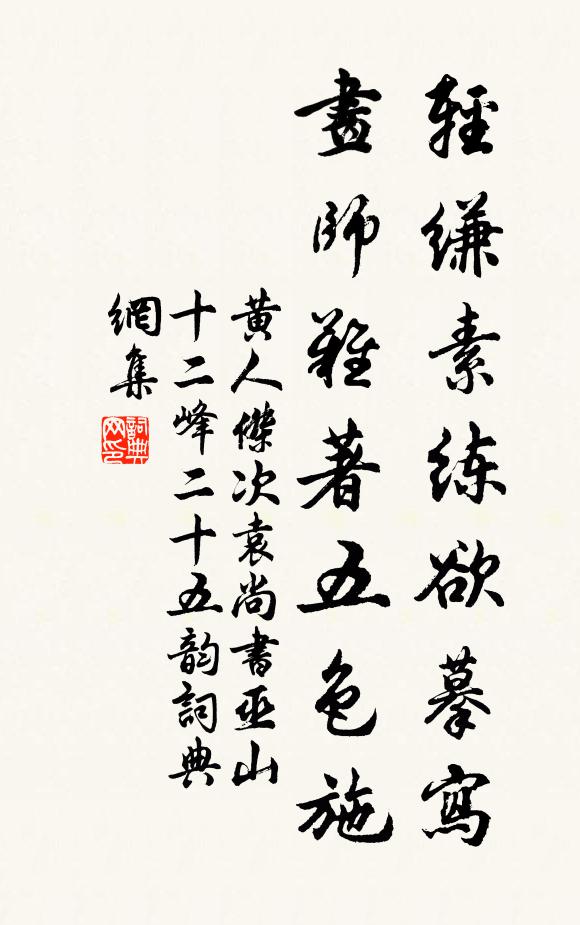 輕縑素练欲摹寫
畫師難著五色施
黃人傑次袁尚書巫山
十二峰二十五韵詞典
網集
詞典
网印